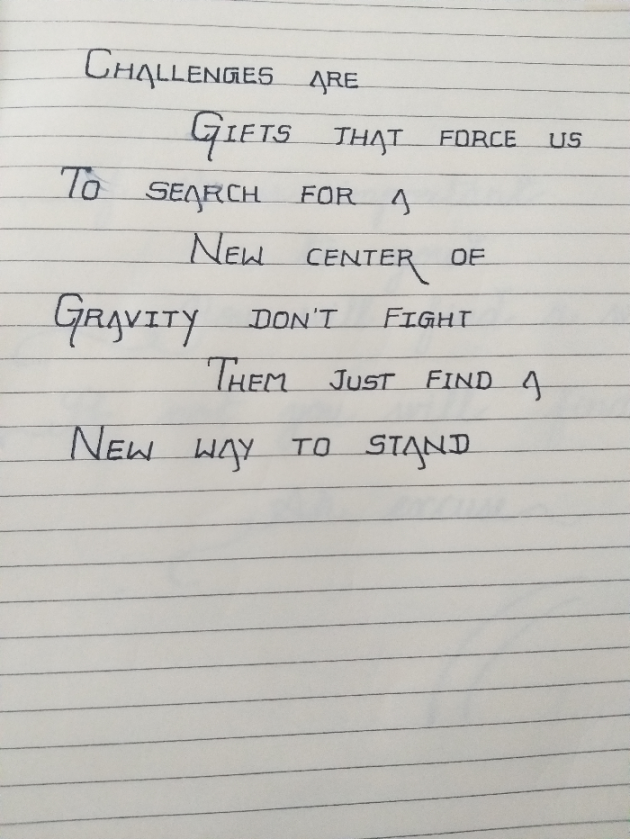 CHALLENGES ARE
GIFTS THAT FORCE US
TO SEARCH FOR A
NEW CENTER OF
GRAVITY DON'T FIGHT
THEM JUST FIND A
NEW WAY TO STAND